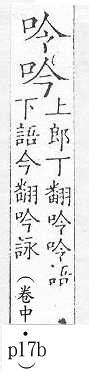 呤吟
上郎丁翻呤呤語
下語今翻吟詠（卷中・
p17b）